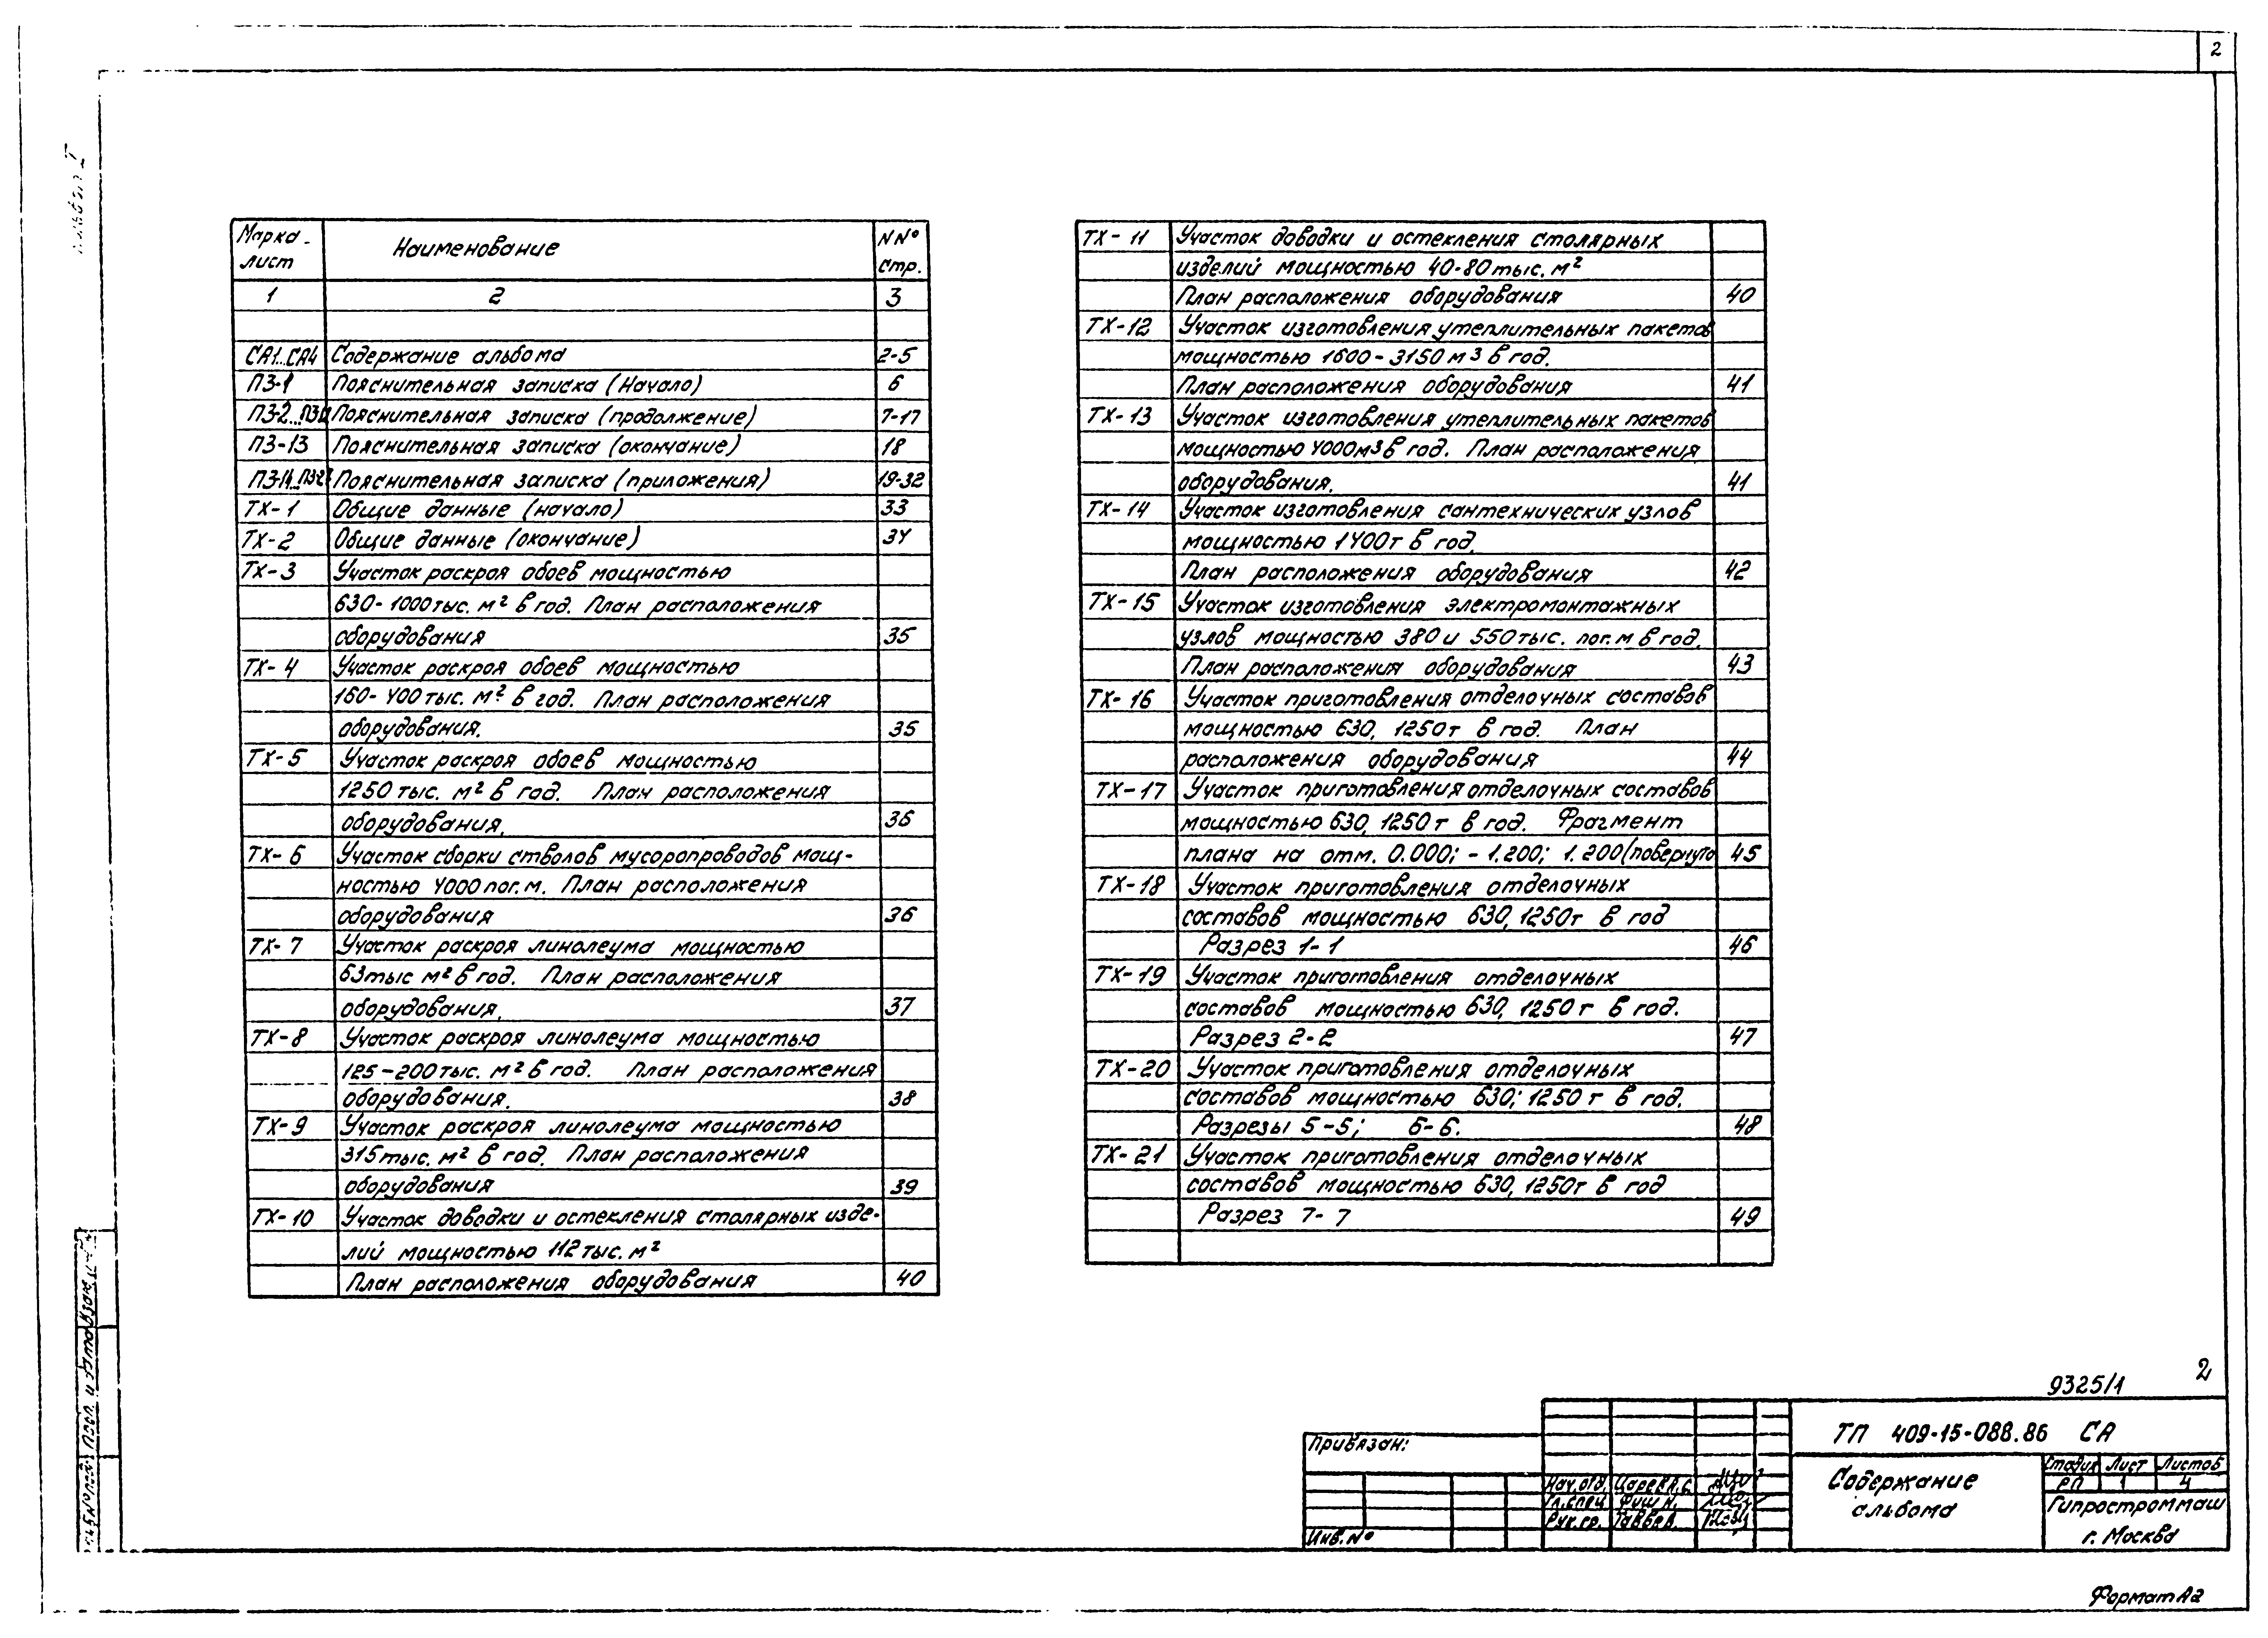 2
Марка-лист Наименование NNº стр.
1 2 3
СА1...СА4 Содержание альбома 2-5
ПЗ-1 Пояснительная записка (начало) 6
ПЗ-2... Пояснительная записка (продолжение) 7-17
ПЗ-13 Пояснительная записка (окончание) 18
ПЗ-14... Пояснительная записка (приложения) 19-32
ТХ-1 Общие данные (начало) 33
ТХ-2 Общие данные (окончание) 34
ТХ-3 Участок раскроя обоев мощностью
630-1000 тыс. м² в год. План расположения
оборудования 35
ТХ-4 Участок раскроя обоев мощностью
160-400 тыс. м² в год. План расположения
оборудования. 35
ТХ-5 Участок раскроя обоев мощностью
1250 тыс. м² в год. План расположения
оборудования. 36
ТХ-6 Участок сборки стволов мусоропроводов мощ-
ностью 4000 пог. м. План расположения
оборудования 36
ТХ-7 Участок раскроя линолеума мощностью
63 тыс м² в год. План расположения
оборудования. 37
ТХ-8 Участок раскроя линолеума мощностью
125-200 тыс. м² в год. План расположения
оборудования. 38
ТХ-9 Участок раскроя линолеума мощностью
315 тыс. м² в год. План расположения
оборудования 39
ТХ-10 Участок доводки и остекления столярных изде-
лий мощностью 112 тыс. м²
План расположения оборудования 40
ТХ-11 Участок доводки и остекления столярных
изделий мощностью 40-80 тыс. м²
План расположения оборудования 40
ТХ-12 Участок изготовления утеплительных пакетов
мощностью 1600-3150 м3 в год.
План расположения оборудования 41
ТХ-13 Участок изготовления утеплительных пакетов
мощностью 4000 м3 в год. План расположения
оборудования. 41
ТХ-14 Участок изготовления сантехнических узлов
мощностью 1400 т в год.
План расположения оборудования 42
ТХ-15 Участок изготовления электромонтажных
узлов мощностью 380 и 550 тыс. пог. м в год.
План расположения оборудования 43
ТХ-16 Участок приготовления отделочных составов
мощностью 630, 1250 т в год. План
расположения оборудования 44
ТХ-17 Участок приготовления отделочных составов
мощностью 630, 1250 т в год. Фрагмент
плана на отм. 0.000; -1.200; 1.200 (повернуто 45
ТХ-18 Участок приготовления отделочных
составов мощностью 630, 1250 т в год
Разрез 1-1 46
ТХ-19 Участок приготовления отделочных
составов мощностью 630, 1250 т в год.
Разрез 2-2 47
ТХ-20 Участок приготовления отделочных
составов мощностью 630; 1250 т в год.
Разрезы 5-5; 6-6. 48
ТХ-21 Участок приготовления отделочных
составов мощностью 630, 1250 т в год
Разрез 7-7 49
9325/1 2
ТП 409-15-088.86 СА
Привязан:
Инв. №
Нач. отд.
Гл. спец. Фиш Н.
Рук. гр.
Содержание
альбома
Стадия Лист Листов
РП 1 4
Гипростроммаш
г. Москва
Формат А2